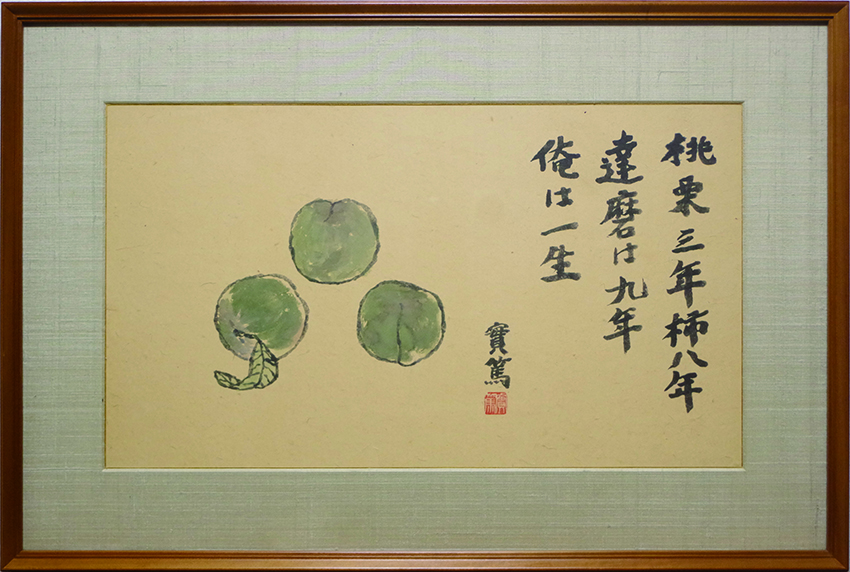 桃栗三年柿八年
達磨は九年
俺は一生
實篤